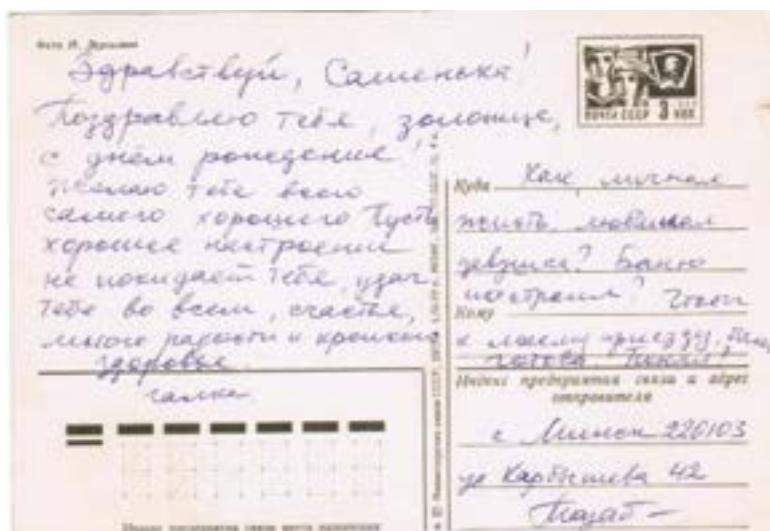 Здравствуй, Сашенька!
Поздравляю тебя, золотце,
с днём рождения!
Желаю тебе всего
самого хорошего Пусть
хорошее настроение
не покидает тебя, удач
тебе во всем, счастья,
много радости и
здоровья.
Галка
ПОЧТА СССР 3 КОП
Куда Как личная
жизнь, любимая
девушка? Баню
построил? Чтоб
Кому
к моему приезду,
готова. Понял?
Индекс предприятия связи и адрес
отправителя
г Минск 220103
ул Карбышева 42
Индекс предприятия связи места назначения